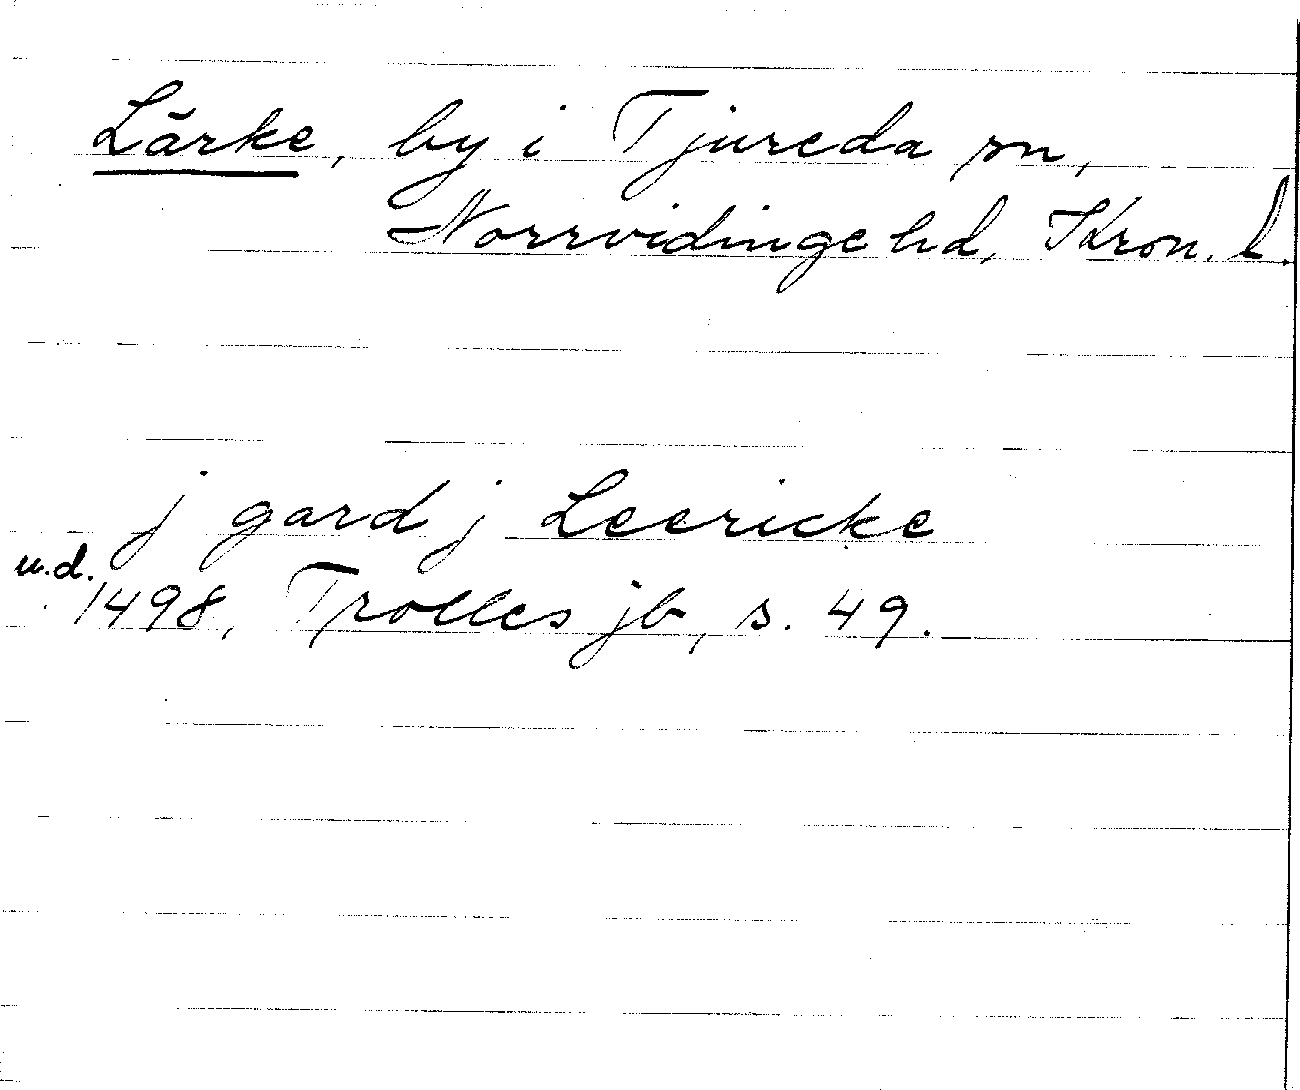 Lärke, by i Tjureda sn,
Norrvidinge hd, Kron. l.
j gard j Leericke
u.d. 1498, Trolles jb, s. 49.